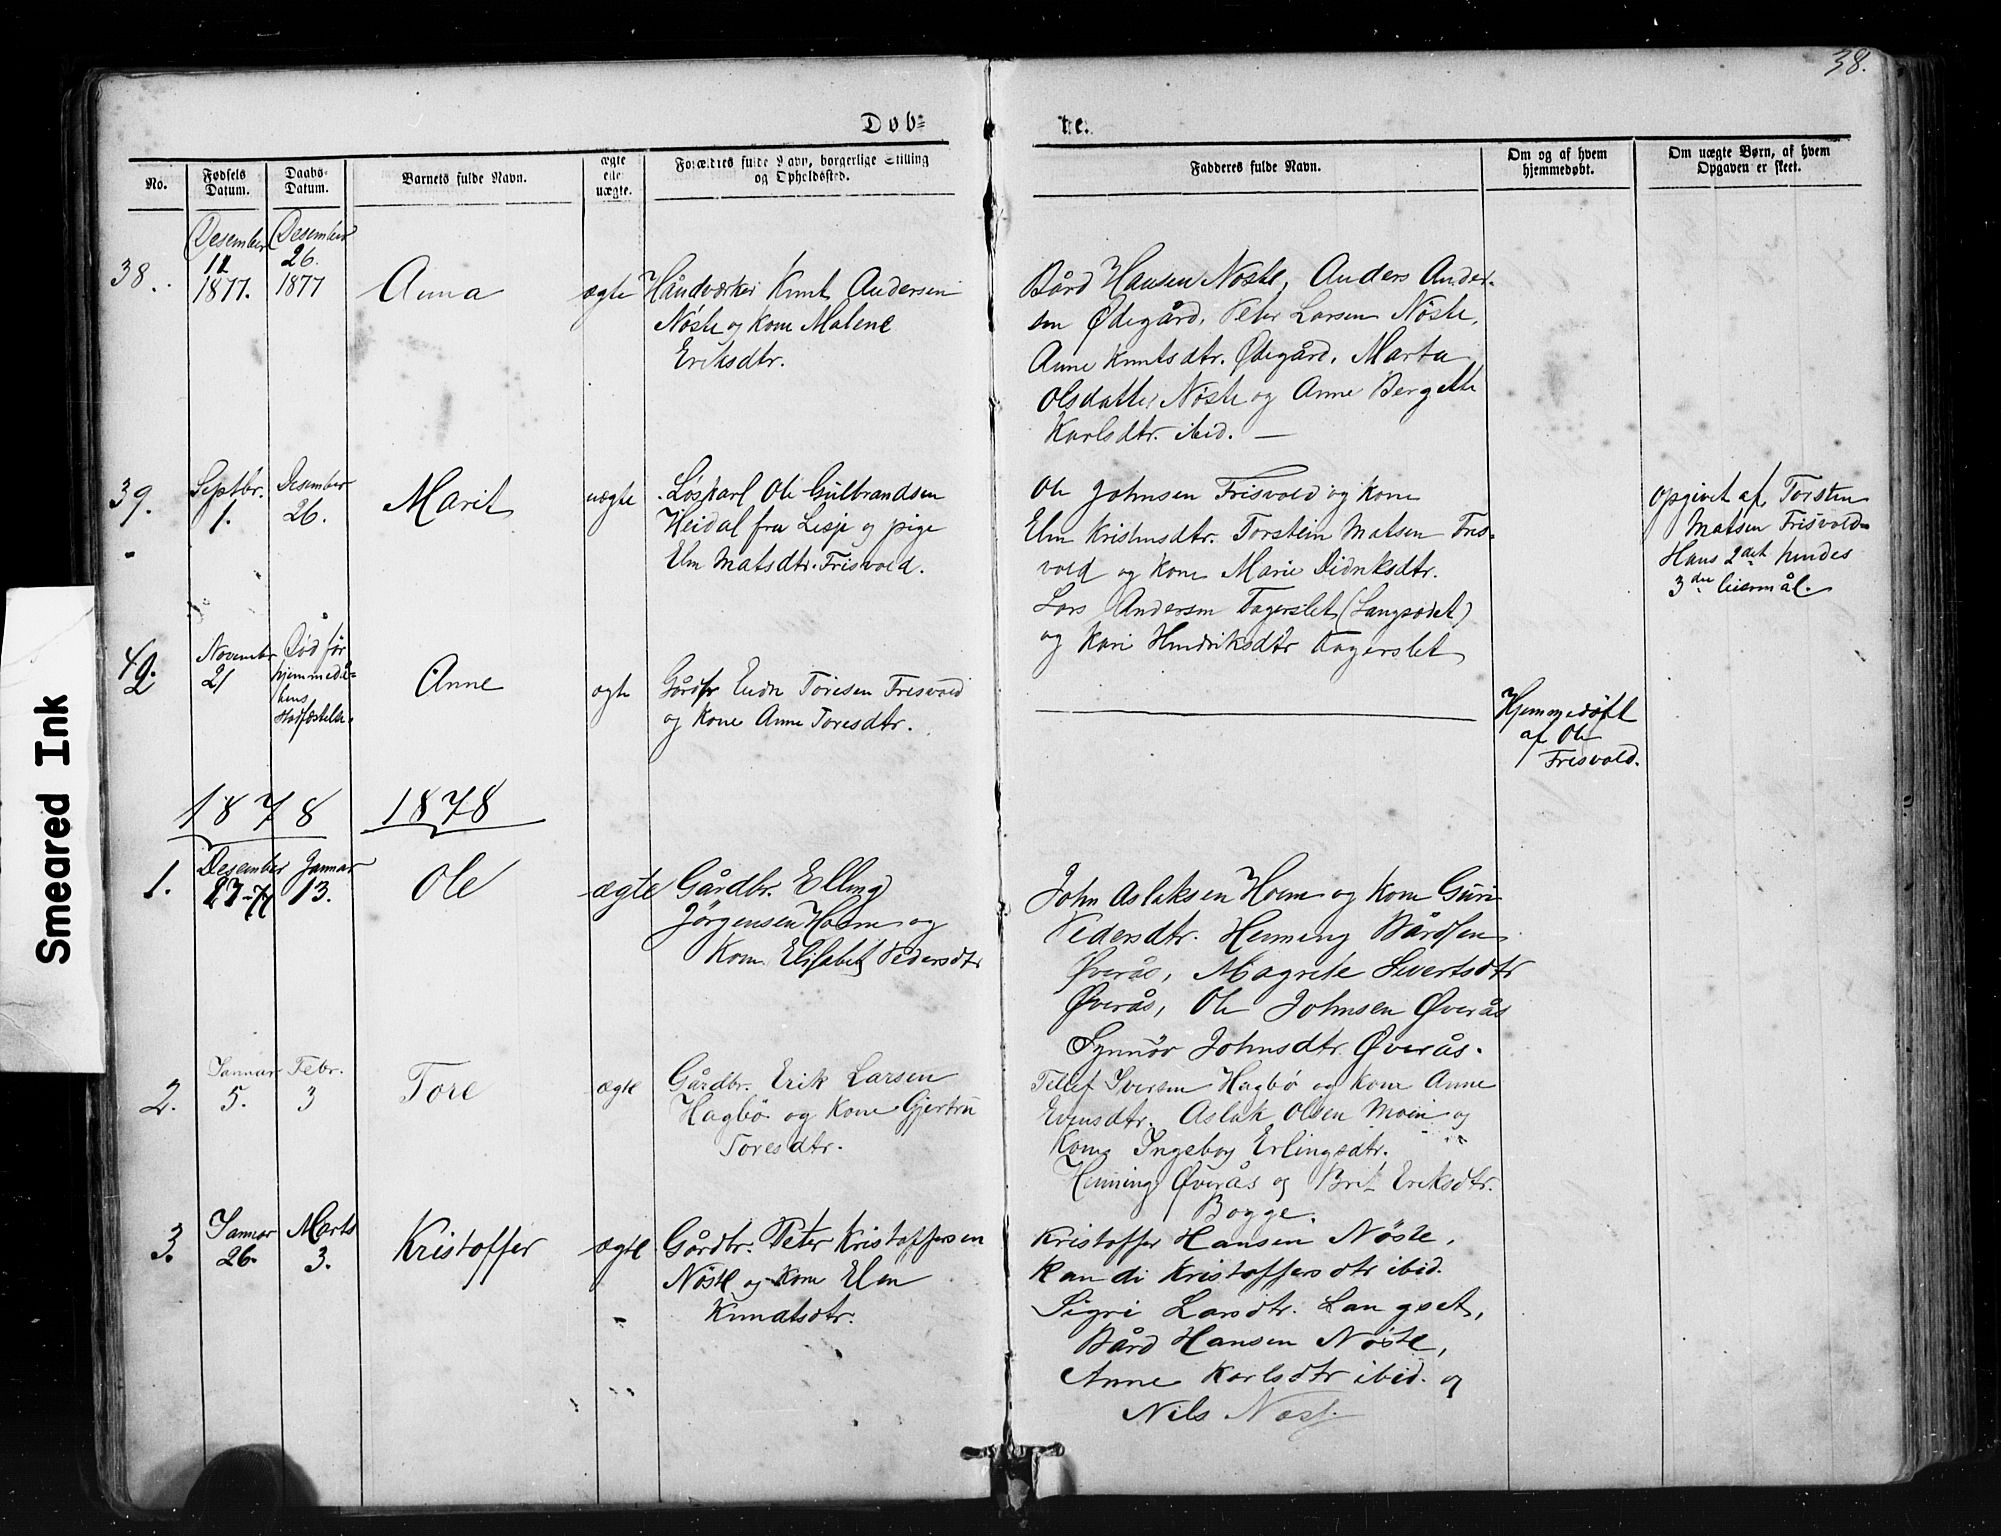 38.
Døb-
te.
No.
Fødsels Datum.
Daabs-Datum.
Barnets fulde Navn.
ægte eller uægte.
Forældres fulde Navn, borgerlige Stilling
og Opholdssted.
Fadderes fulde Navn.
Om og af hvem
hjemmedøbt.
Om uægte Børn, af hvem
Opgaven er skeet.
38.
Desember
12
1877.
Desember
26.
1877
Anna
ægte
Håndværker Knut Andersen
Nøste og kone Malene
Eriksdtr.
Bård Hansen Nøste, Anders Ander-
sen Ødegård, Peter Larsen Nøste,
Anne Knutsdtr. Ødegård, Marta
Olsdatter Nøste og Anne Bergette
Karlsdtr. ibid. —
39.
Septbr.
1.
Desember
26.
Marit
uægte
Løskarl Ole Gulbrandsen
Heidal fra Lesje og pige
Elen Matsdtr. Frisvold.
Ole Johnsen Frisvold og kone
Elen Kristensdtr. Torstein Matsen Fris-
vold og kone Marie Didriksdtr.
Lars Andersen Fagerslet (Langsødet)
og Kari Hendriksdtr Fagerslet
opgivet af Torsten
Matsen Frisvold
Hans 2det hendes
3die leiermål.
40.
November
21
Død før
hjemmedå-
bens
Stadfæstelse.
Anne
ægte
Gårdbr Endre Toresen Frisvold
og kone Anne Toresdtr.
Hjemmedøbt
af Ole
Frisvold.
1878
1878
1.
Desember
27-77
Januar
13.
Ole
ægte
Gårdbr. Elling
Jørgensen Hoem og
kone Elisabet Pedersdtr
John Aslaksen Hoem og kone Guri
Pedersdtr. Henning Bårdsen
Øverås, Magrete Sivertsdtr
Øverås, Ole Johnsen Øverås
Synnøv Johnsdtr. Øverås.
2.
Januar
5.
Febr.
3
Tore
ægte
Gårdbr. Erik Larsen
Hagbø og kone Gjertru
Toresdtr.
Tellef Iversen Hagbø og kone Anne
Evensdtr. Aslak Olsen Moin og
kone Ingebor Erlingsdtr.
Henning Øverås og Brit Eriksdtr.
Bogge.
3.
Januar
26.
Marts
3.
Kristoffer
ægte
Gårdbr. Peter Kristoffersen
Nøste og kone Elen
Knudtsdtr.
Kristoffer Hansen Nøste,
Randi Kristoffersdtr ibid.
Sigri Larsdtr. Langset,
Bård Hansen Nøste,
Anne Karlsdtr ibid. og
Nils
Smeared Ink